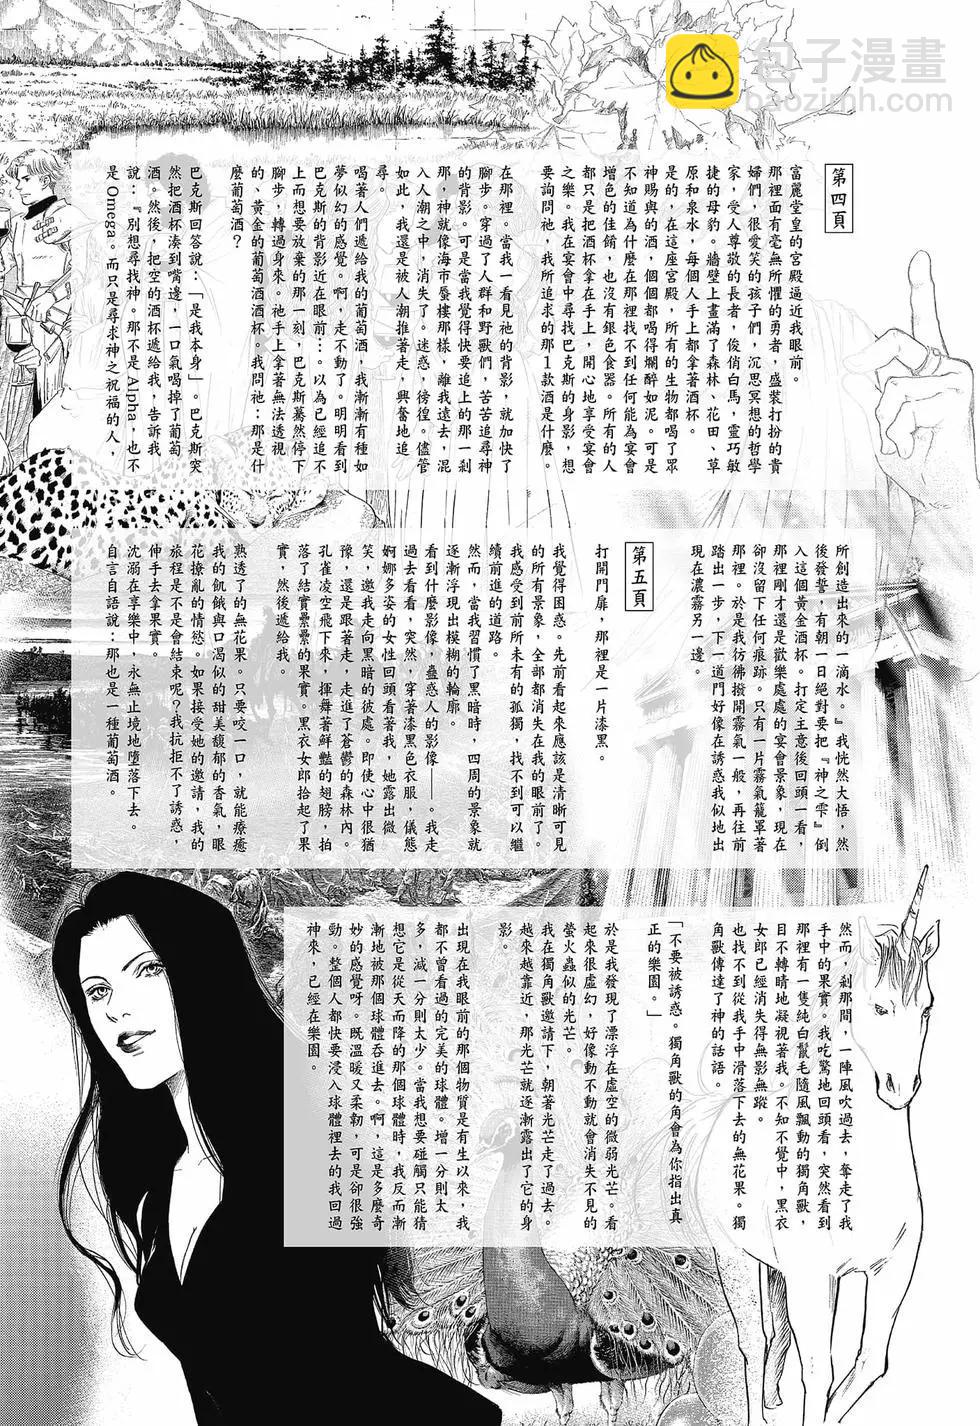 包子漫畫
baozimh.com
第四頁
富麗堂皇的宮殿逼近我眼前。
那裡面有毫無所懼的勇者，盛裝打扮的貴
婦們，很愛笑的孩子們，沉思冥想的哲學
家，受人尊敬的長者，俊俏白馬，靈巧敏
捷的母豹。牆壁上畫滿了森林、花田、草
原和泉水，每個人手上都拿著酒杯。
是的，在這座宮殿，所有的生物都喝了眾
神賜與的酒，個個都喝得爛醉如泥。可是
不知道為什麼在那裡找不到任何能為宴會
增色的佳餚，也沒有銀色食器。所有的人
都只是把酒杯拿在手上，開心地享受宴會
之樂。我在宴會中尋找巴克斯的身影，想
要詢問祂，我所追求的那1款酒是什麼。
在那裡。當我一看見祂的背影，就加快了
腳步。穿過了人群和野獸們，苦苦追尋神
的背影。可是當我覺得快要追上的那一剎
那，神就像海市蜃樓那樣，離我遠去，混
入人潮之中，消失了。迷惑，徬徨。儘管
如此，我還是被人潮推著走，興奮地追
尋。
喝著人們遞給我的葡萄酒，我漸漸有種如
夢似幻的感覺。啊，走不動了。明明看到
巴克斯的背影近在眼前⋯。以為已經追不
上而想要放棄的那一刻，巴克斯驀然停下
腳步，轉過身來。祂手上拿著無法透視
的、黃金的葡萄酒酒杯。我問祂：那是什
麼葡萄酒？
巴克斯回答說：「是我本身」。巴克斯突
然把酒杯湊到嘴邊，一口氣喝掉了葡萄
酒。然後，把空的酒杯遞給我，告訴我
說：『別想尋找神。那不是 Alpha，也不
是 Omega。而只是尋求神之祝福的人，
所創造出來的一滴水。』我恍然大悟，然
後發誓，有朝一日絕對要把『神之雫』倒
入這個黃金酒杯。打定主意後回頭一看，
那裡剛才還是歡樂處處的宴會景象，現在
卻沒留下任何痕跡。只有一片霧氣籠罩著
那裡。於是我彷彿撥開霧氣一般，再往前
踏出一步，下一道門好像在誘惑我似地出
現在濃霧另一邊。
第五頁
打開門扉，那裡是一片漆黑。
我覺得困惑。先前看起來應該是清晰可見
的所有景象，全部都消失在我的眼前了。
我感受到前所未有的孤獨，找不到可以繼
續前進的道路。
然而，當我習慣了黑暗時，四周的景象就
逐漸浮現出模糊的輪廓。
看到什麼影像，蠱惑人的影像——。我走
過去看看，突然，穿著漆黑色衣服，儀態
婀娜多姿的女性回頭看著我，她露出微
笑，邀我走向黑暗的彼處。即使心中很猶
豫，還是跟著走，走進了蒼鬱的森林內。
孔雀凌空飛下來，揮舞著鮮豔的翅膀，拍
落了結實纍纍的果實。黑衣女郎拾起了果
實，然後遞給我。
熟透了的無花果。只要咬一口，就能療癒
我的飢餓與口渴似的甜美馥郁的香氣，眼
花撩亂的情慾。如果接受她的邀請，我的
旅程是不是會結束呢？我抗拒不了誘惑，
伸手去拿果實。
沈溺在享樂中，永無止境地墮落下去。
自言自語說：那也是一種葡萄酒。
然而，剎那間，一陣風吹過去，奪走了我
手中的果實。我吃驚地回頭看，突然看到
那裡有一隻純白鬣毛隨風飄動的獨角獸，
目不轉睛地凝視著我。不知不覺中，黑衣
女郎已經消失得無影無蹤。
也找不到從我手中滑落下去的無花果。獨
角獸傳達了神的話語。
「不要被誘惑。獨角獸的角會為你指出真
正的樂園。」
於是我發現了漂浮在虛空的微弱光芒。看
起來很虛幻，好像動不動就會消失不見的
螢火蟲似的光芒。
我在獨角獸邀請下，朝著光芒走了過去。
越來越靠近，那光芒就逐漸露出了它的身
影。
出現在我眼前的那個物質是有生以來，我
都不曾看過的完美的球體。增一分則太
多，減一分則太少。當我想要碰觸只能猜
想它是從天而降的那個球體時，我反而漸
漸地被那個球體吞進去。啊，這是多麼奇
妙的感覺呀。既溫暖又柔韌，可是卻很強
勁。整個人都快要浸入球體裡去的我回過
神來，已經在樂園。